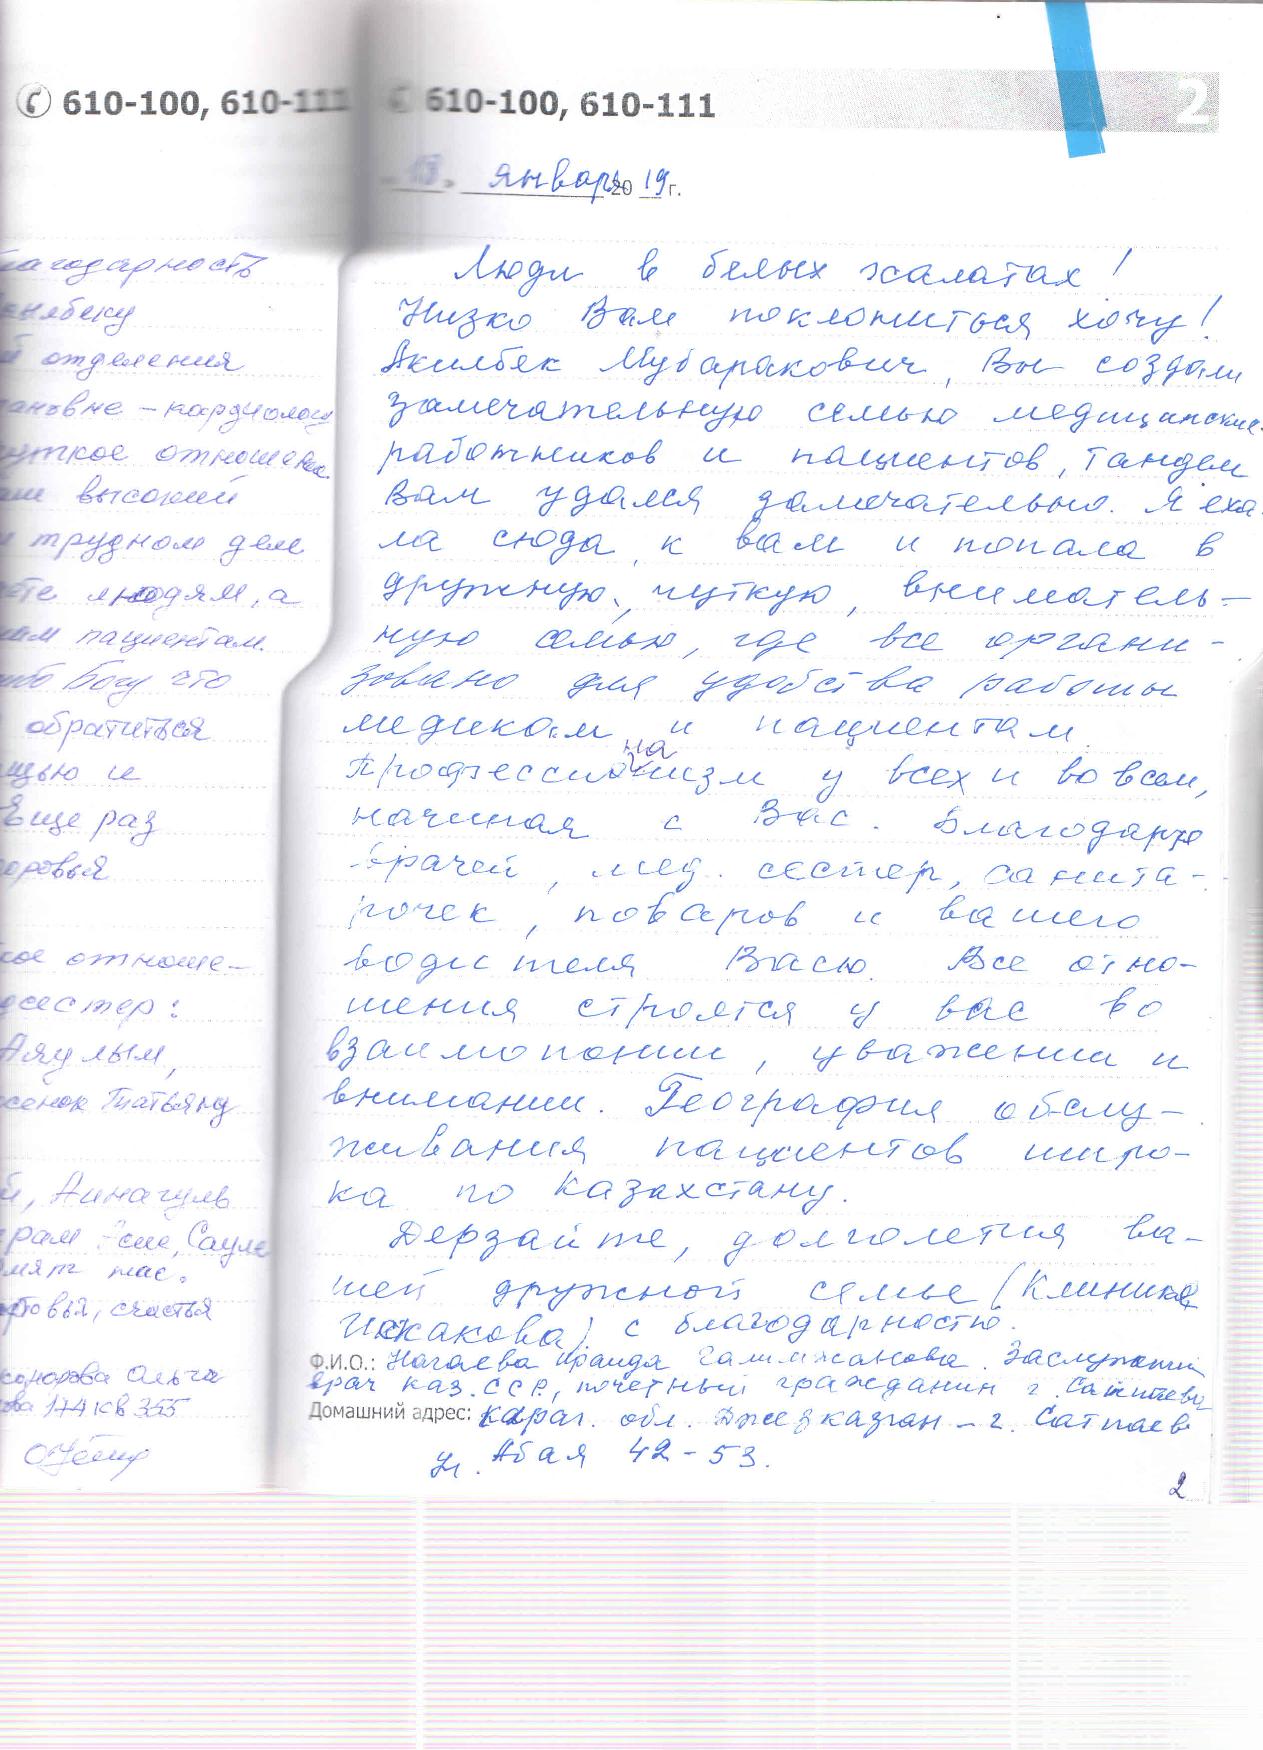 610-100, 610-111
лагодарность
отделения
ановне - кардиологу
уткое отношение
высокий
трудном деле
людям, а
пациентам.
Богу что
обратиться
щью и
Еще раз
доровья
кое отноше-
дсестер:
Аяулым,
сенок Татьяну
Айнагуль
Сауле
счастья
Ольга
174 кв 355
610-100, 610-111
2
18 январь 2019 г.
Люди в белых халатах!
Низко Вам поклониться хочу!
Акилбек Мубаракович, Вы создали
замечательную семью медицинские
работников и пациентов, тандем
Вам удался замечательно. Я еха-
ла сюда, к вам и попала в
дружную, чуткую, вниматель-
ную семью, где все органи-
зовано для удобства работы
медикам и пациентам.
Профессионализм у всех и во всем,
начиная с Вас. Благодарю
врачей, мед. сестер, санита-
рочек, поваров и вашего
водителя Васю. Все отно-
шения строятся у вас во
взаимопонии, уважении и
внимании. География обслу-
живания пациентов широ-
ка по Казахстану.
Дерзайте, долголетия ва-
шей дружной семье (Клинике
Искакова) с благодарностью.
Ф.И.О.: Нагаева Галимжановна. Заслуженный
врач Каз.ССР, почетный гражданин г. Сатпаева
Домашний адрес: Караг. обл. Джезказган - г. Сатпаев
ул. Абая 42-53.
2